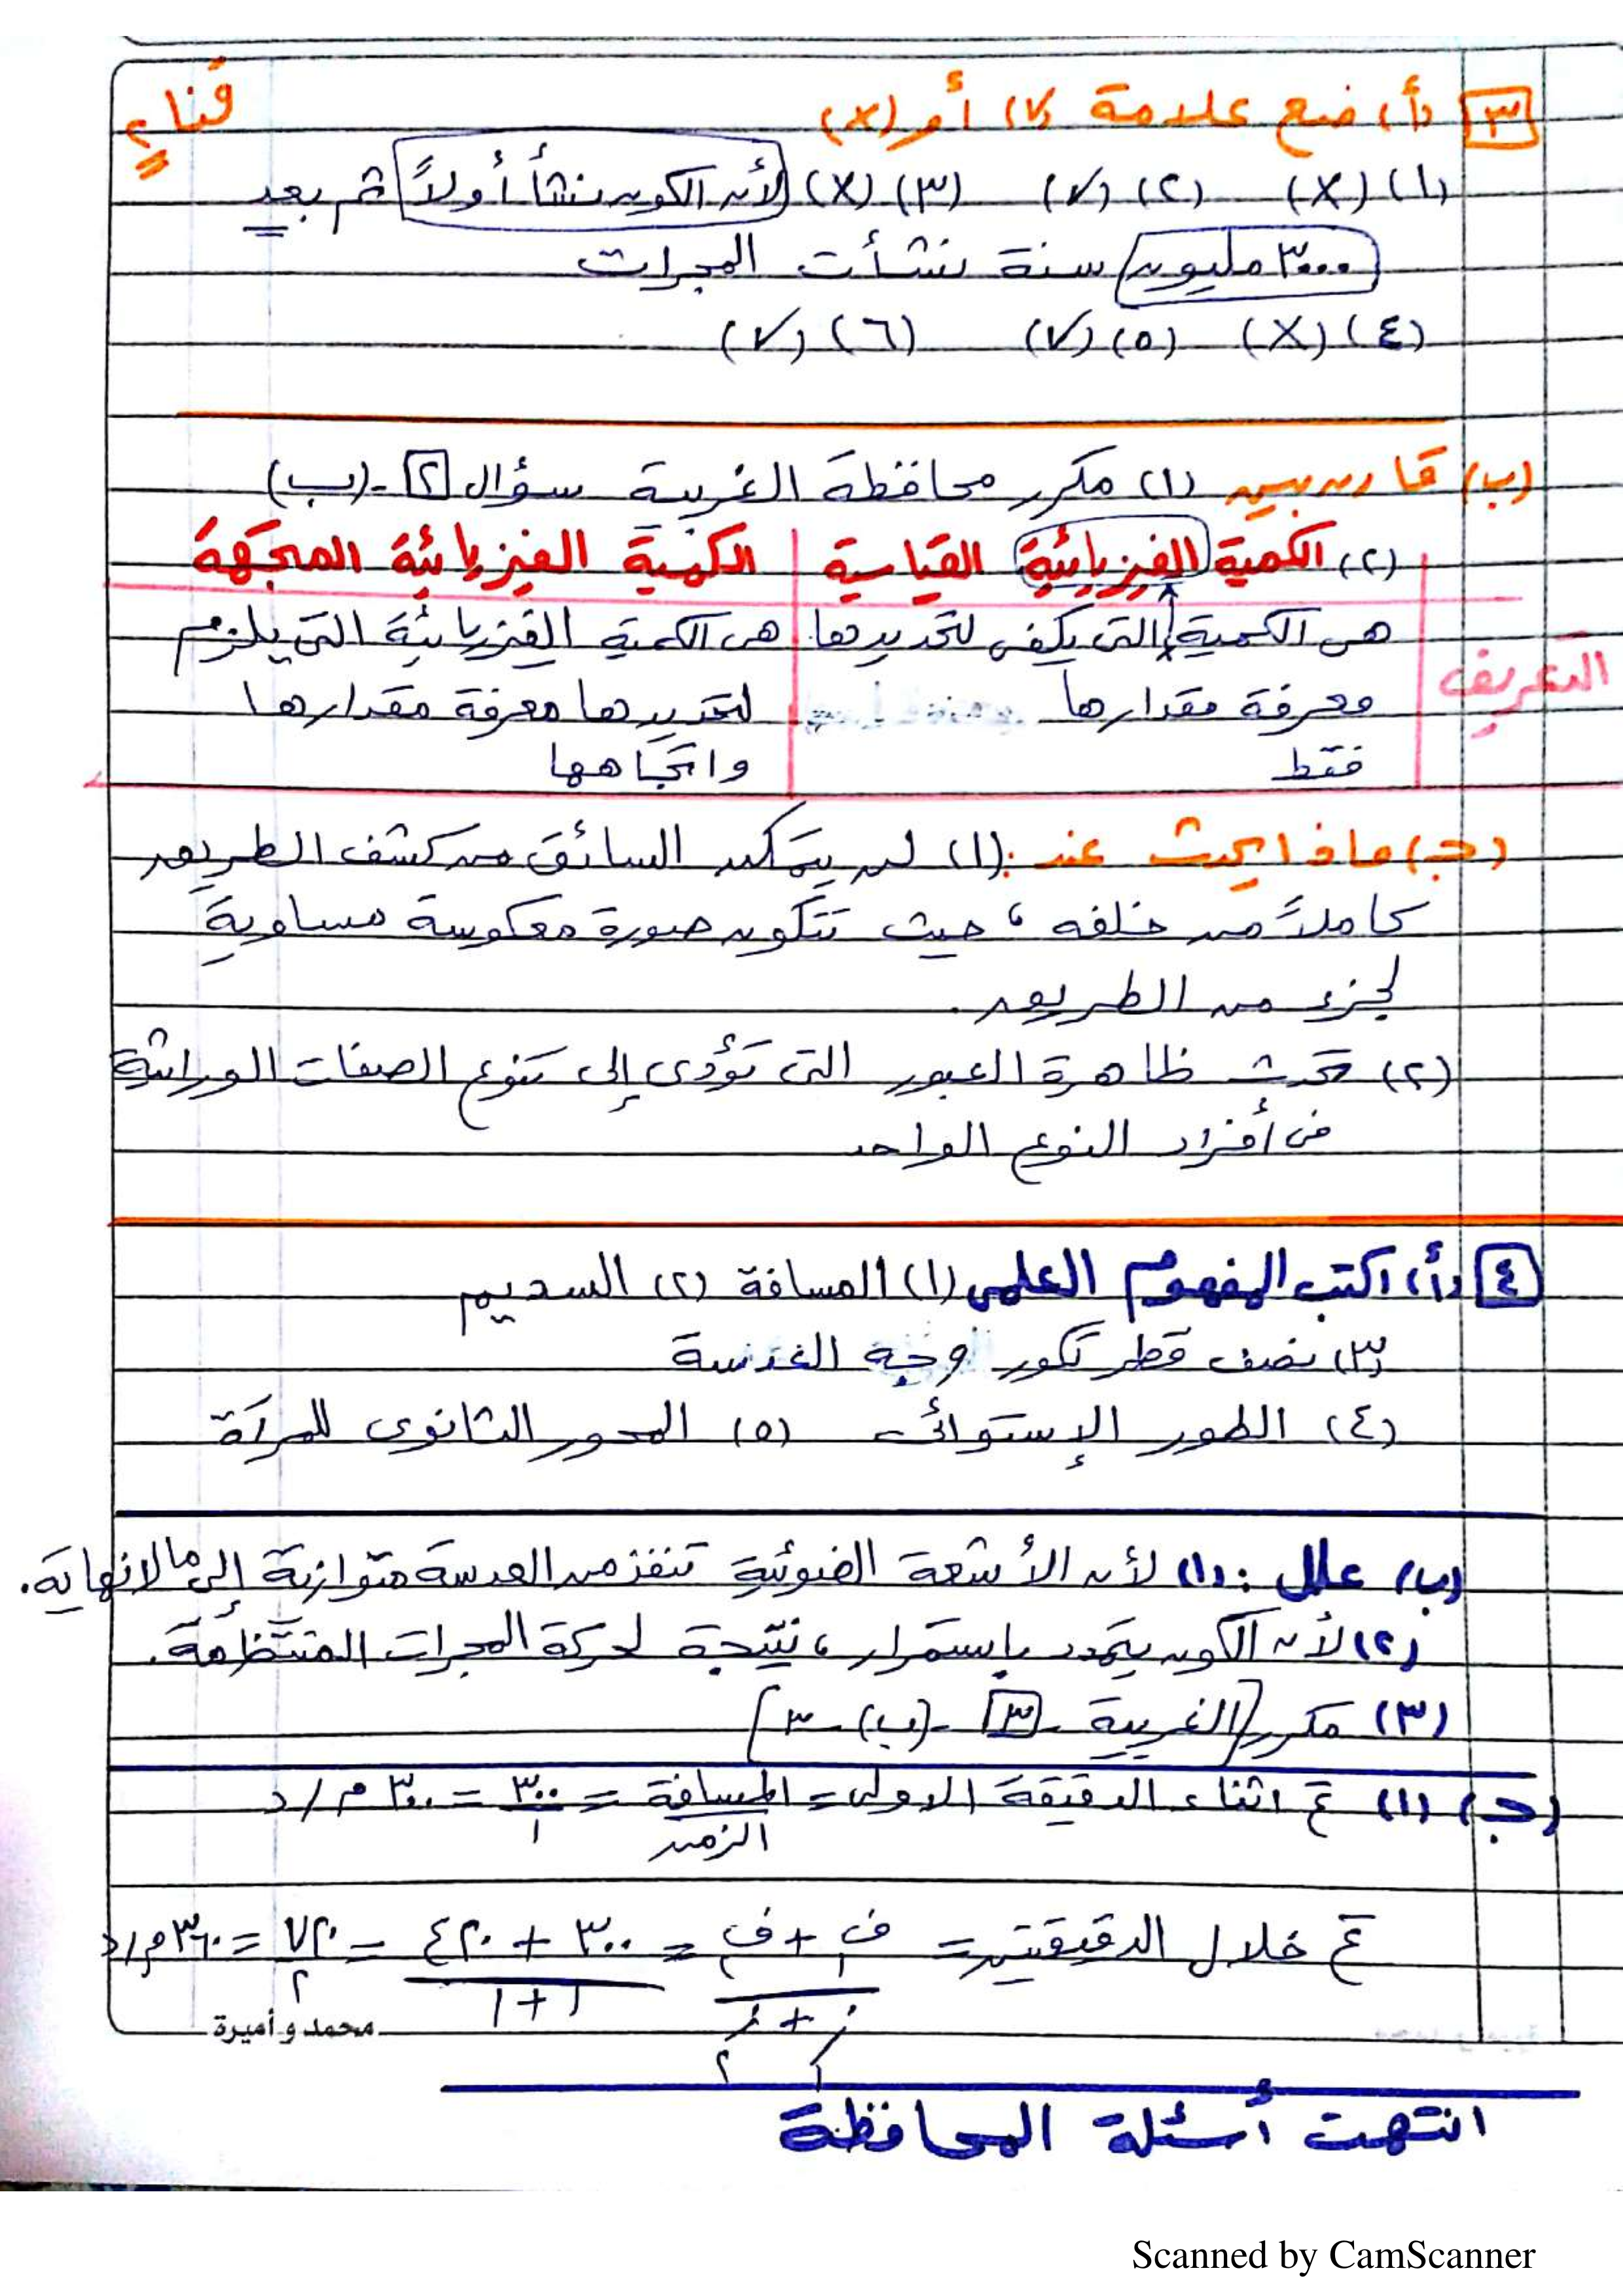 ٣ (أ) ضع علامة (✓) أو (×)
قنا ٢
(١) (×) (٢) (✓) (٣) (×) لأن الكون نشأ أولاً ثم بعد
٣٠٠٠ مليون سنة نشأت المجرات
(٤) (×) (٥) (✓) (٦) (✓)
(ب) قارن بين (١) مكرر محافظة الغربية سؤال ٢ - (ب)
(٢) الكمية الفيزيائية القياسية | الكمية الفيزيائية المتجهة
التعريف
هى الكمية التى يكفى لتحديدها | هى الكمية الفيزيائية التى يلزم
معرفة مقدارها | لتحديدها معرفة مقدارها
فقط | واتجاهها
(ج) ماذا يحدث عند: (١) لن يتمكن السائق من كشف الطريق
كاملاً من خلفه، حيث تتكون صورة معكوسة مساوية
لجزء من الطريق.
(٢) تحدث ظاهرة العبور التى تؤدى إلى تنوع الصفات الوراثية
فى أفراد النوع الواحد
٤ (أ) اكتب المفهوم العلمى (١) المسافة (٢) السديم
(٣) نصف قطر تكور وجه العدسة
(٤) الطور الإستوائى (٥) المحور الثانوى للمرآة
(ب) علل: (١) لأن الأشعة الضوئية تنفذ من العدسة متوازية إلى ما لا نهاية.
(٢) لأن الكون يتمدد بإستمرار، نتيجة لحركة المجرات المنتظمة.
(٣) مكرر [الغربية - ٣ - (ب) - ٣]
(ج) (١) ع أثناء الدقيقة الاولى = المسافة / الزمن = ٣٠٠ / ١ = ٣٠٠ م/د
ع خلال الدقيقتين = ف١ + ف٢ / ز١ + ز٢ = ٣٠٠ + ٤٢٠ / ١ + ١ = ٧٢٠ / ٢ = ٣٦٠ م/د
محمد و أميرة
انتهت أسئلة المحافظة
Scanned by CamScanner